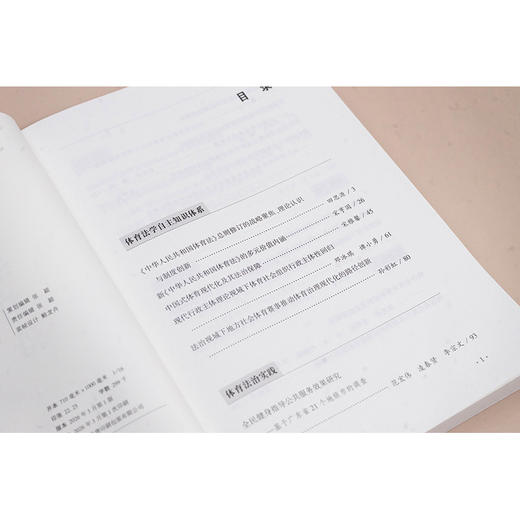 目 录
体育法学自主知识体系
《中华人民共和国体育法》总则修订的战略聚焦、理论认识
与制度创新 / 3
新《中华人民共和国体育法》的多元价值内涵 / 26
中国式体育现代化及其法治保障 / 45
现代行政主体理论视域下体育社会组织行政主体性回归
邓冰琪 谭小勇 / 61
法治视域下地方社会体育赛事推动体育治理现代化的路径创新
孙彩虹 / 80
体育法治实践
全民健身指导公共服务效果研究
——基于广东省21个地级市的调查
/ 93
· 1 ·
策划编辑 张 超
责任编辑 张 超
开本 710毫米×1000毫米 1/16
印张 22.25 字数 299千
版本 2026年1月第1版
2026年1月第1次印刷